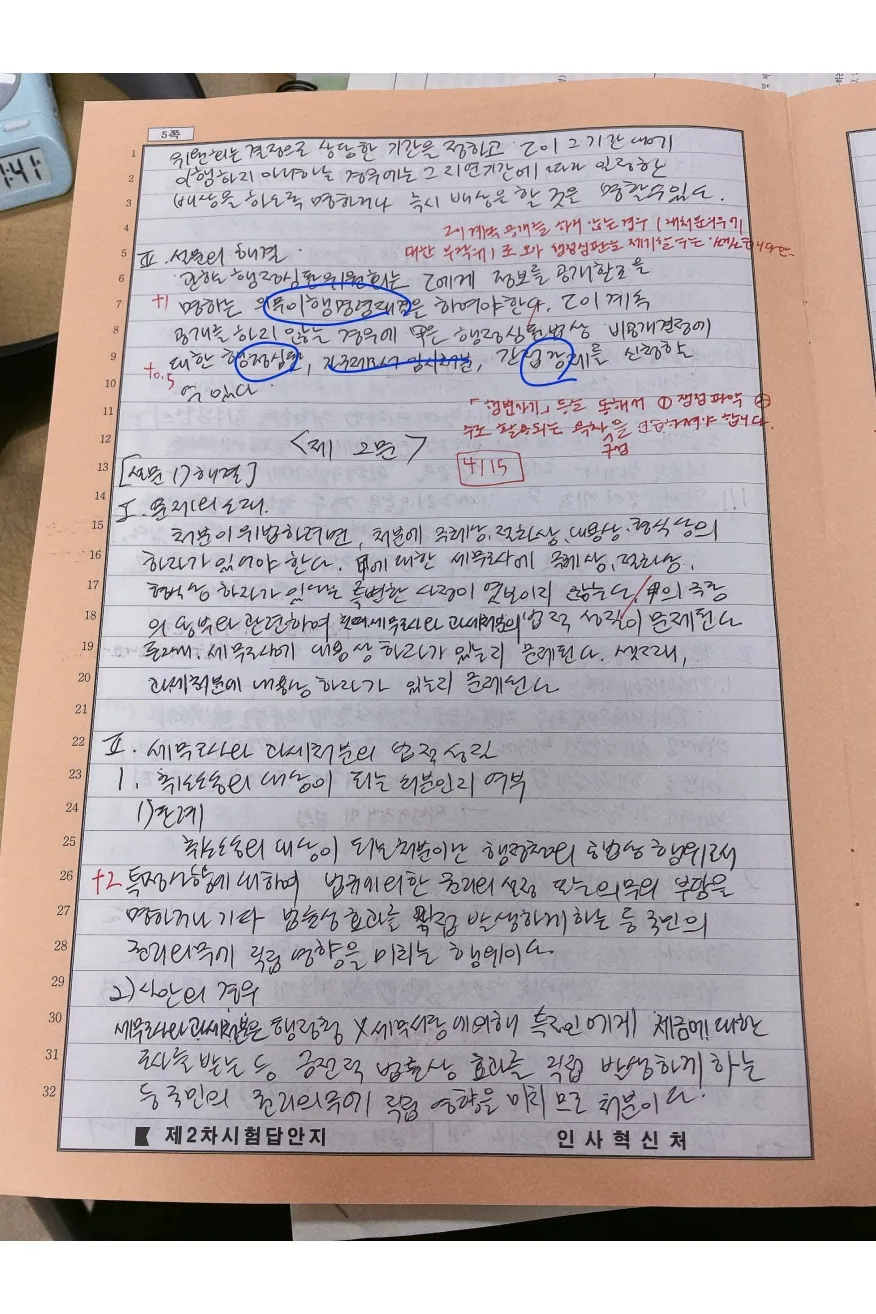 1:41
5쪽
1 위원회는 결정으로 상당한 기간을 정하고 乙이 그 기간 내에
2 이행하지 아니하는 경우에는 그 지연기간에 따라 일정한
3 배상을 하도록 명하거나 즉시 배상을 할 것을 명할 수 있다.
4 乙이 계속 공개를 하지 않는 경우
5 Ⅲ. 설문의 해결
대한 부작위)로 보아 행정심판을 제기할 수는
6 관할 행정심판위원회는 乙에게 정보를 공개할 것을
7 +1 명하는 의무이행명령재결을 하여야 한다. 乙이 계속
8 공개를 하지 않는 경우에 甲은 행정심판법상 비공개결정에
9 +0.5 대한 행정심판, 간접강제를 신청할
10 수 있다.
11 「행변사기」 등을 통해서 ① 쟁점 파악 ②
12 <제 2문>
주로 활용되는 목차을
13 [설문 1) 해결]
4/15
14 Ⅰ. 문제의 소재
15 처분이 위법하려면, 처분에 주체상, 절차상, 내용상, 형식상의
16 하자가 있어야 한다. 甲에 대한 세무조사에 주체상, 절차상,
17 형식상 하자가 있다는 특별한 사정이 엿보이지 않는다. 甲의 주장
18 의 당부와 관련하여 세무조사와 과세처분의 법적 성질이 문제된다
19 둘째, 세무조사에 내용상 하자가 있는지 문제된다. 셋째,
20 과세처분에 내용상 하자가 있는지 문제된다
21
22 Ⅱ. 세무조사와 과세처분의 법적 성질
23 1. 취소소송의 대상이 되는 처분인지 여부
24 1) 판례
25 취소소송의 대상이 되는 처분이란 행정청의 공법상 행위로서
26 +2 특정사항에 대하여 법규에 의한 권리의 설정 또는 의무의 부담을
27 명하거나 기타 법률상 효과를 직접 발생하게 하는 등 국민의
28 권리의무에 직접 영향을 미치는 행위이다.
29 2) 사안의 경우
30 세무조사와 과세처분은 행정청 X세무서장에 의해 특정인에게 세금에 대한
31 조사를 받는 등 금전적 법률상 효과를 직접 발생하게 하는
32 등 국민의 권리의무에 직접 영향을 미치므로 처분이다.
제2차시험답안지
인사혁신처